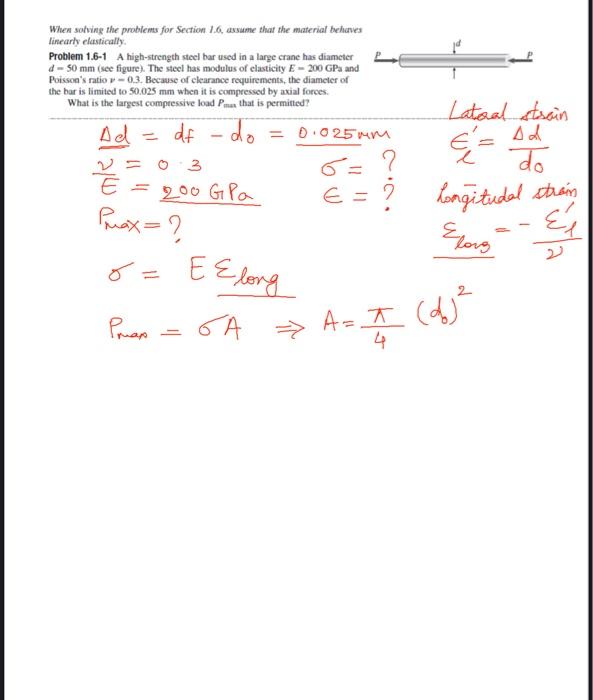 When solving the problems for Section 1.6, assume that the material behaves
linearly elastically.
Problem 1.6-1 A high-strength steel bar used in a large crane has diameter
d = 50 mm (see figure). The steel has modulus of elasticity E = 200 GPa and
Poisson's ratio ν = 0.3. Because of clearance requirements, the diameter of
the bar is limited to 50.025 mm when it is compressed by axial forces.
What is the largest compressive load Pmax that is permitted?
d
P
P
Δd = df - do = 0.025mm
ν = 0.3
E = 200 GPa
Pmax = ?
σ = ?
ε = ?
Lateral strain
ε'l = Δd/do
Longitudal strain
εlong = - ε'l/ν
σ = E εlong
Pmax = σA ⇒ A = π/4 (do)²